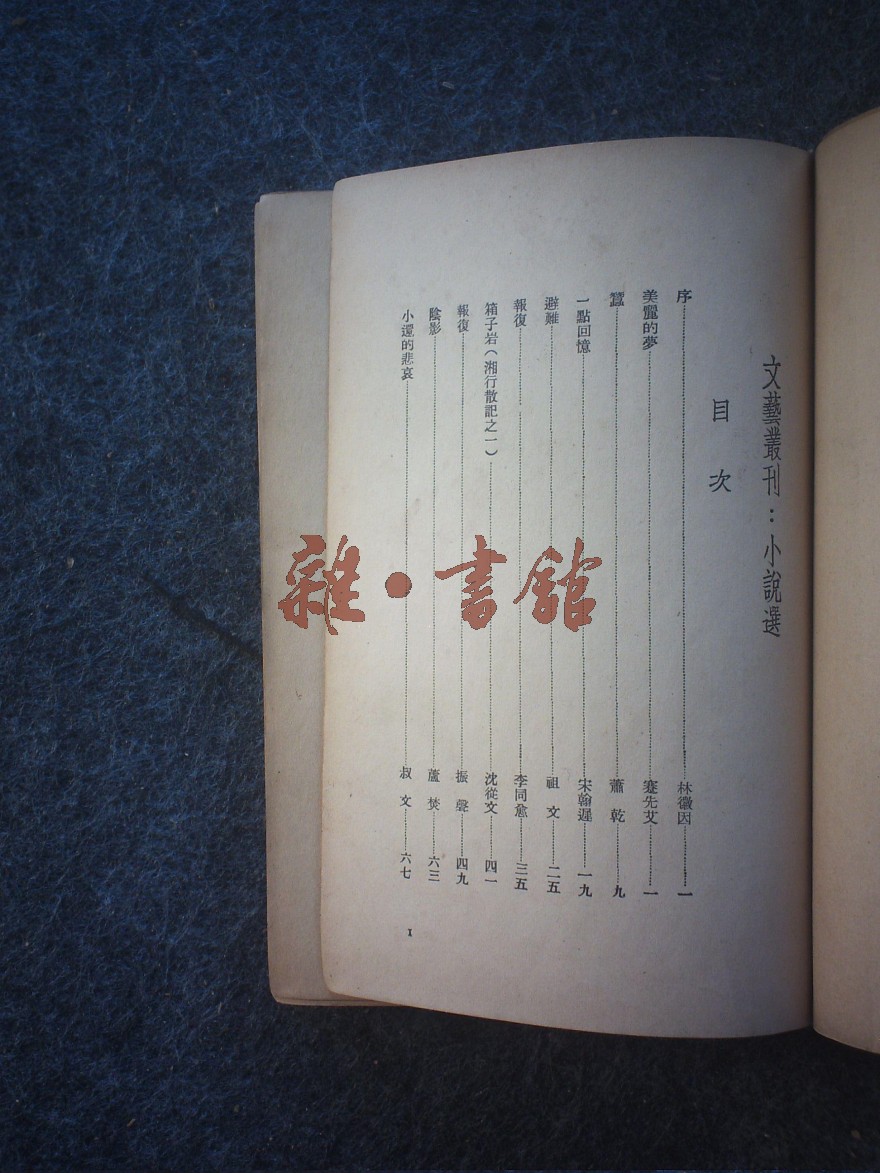 文藝叢刊：小說選
目次
序 林徽因 一
美麗的夢 蹇先艾 一
蠶 蕭乾 九
一點回憶 宋翰遲 一九
避難 祖文 二五
報復 李同愈 三五
箱子岩（湘行散記之一） 沈從文 四一
報復 振聲 四九
陰影 蘆焚 六三
小還的悲哀 叔文 六七
I
雜·書館